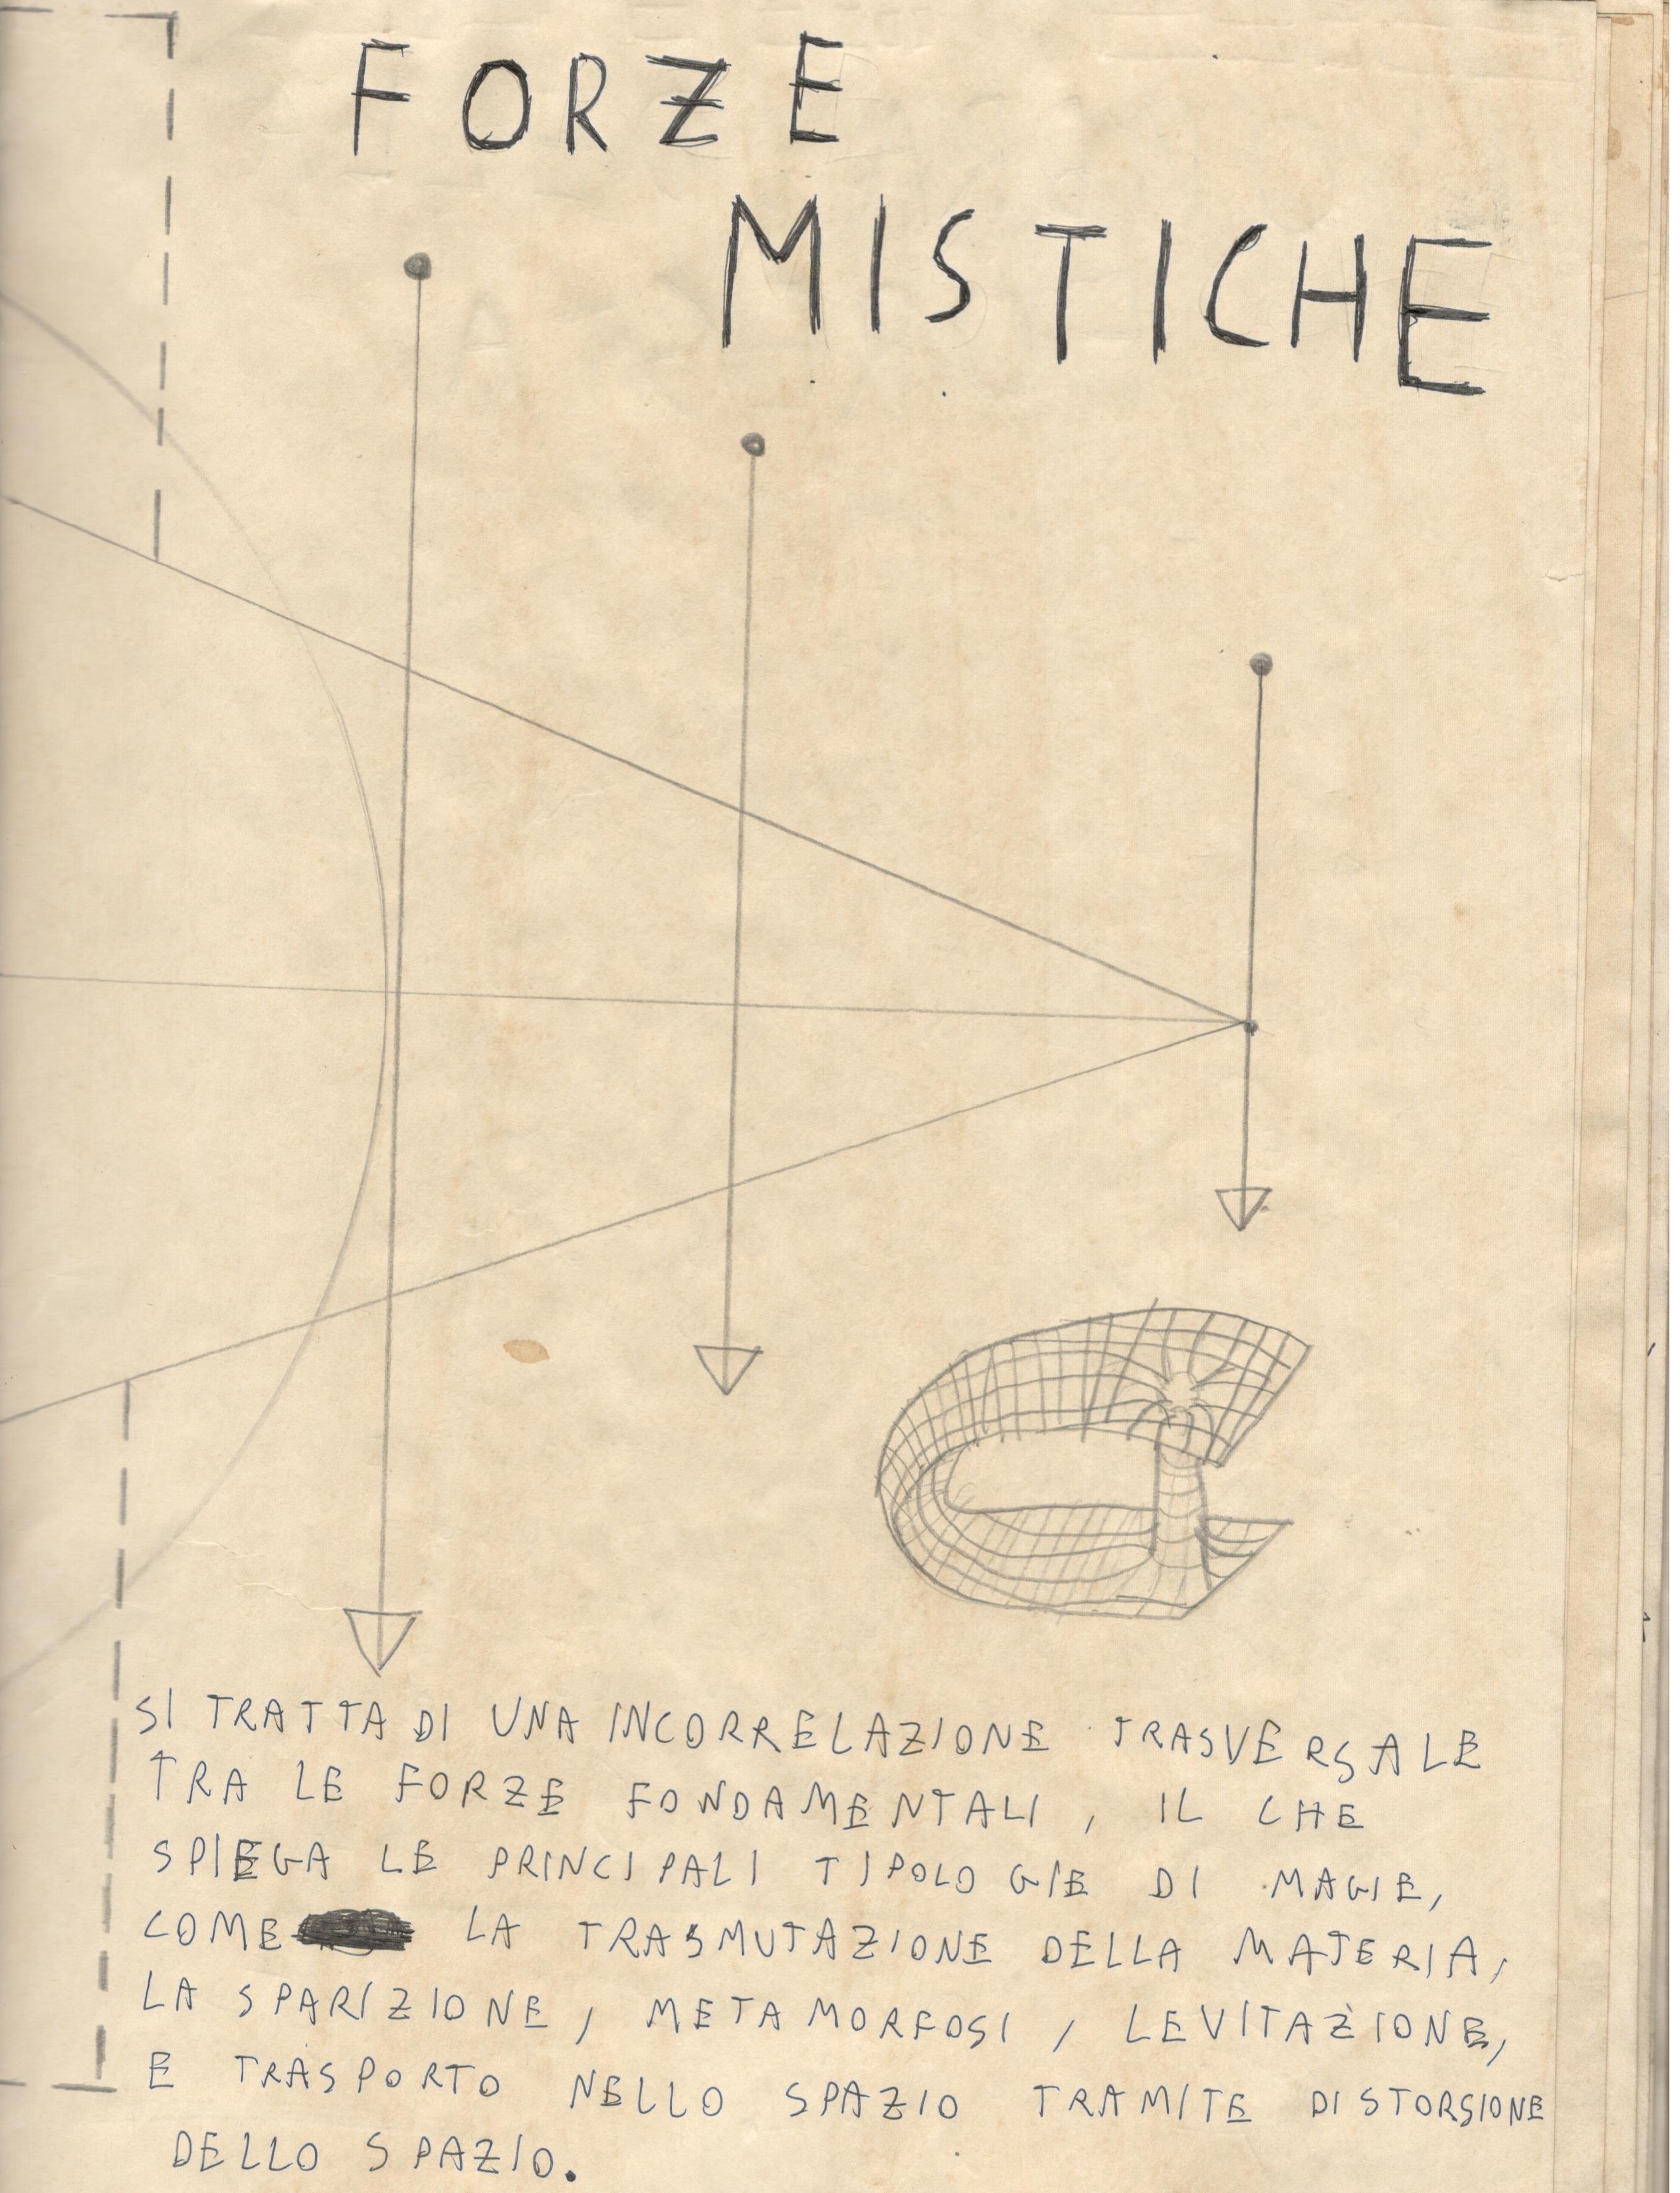 FORZE
MISTICHE
SI TRATTA DI UNA INCORRELAZIONE TRASVERSALE
TRA LE FORZE FONDAMENTALI, IL CHE
SPIEGA LE PRINCIPALI TIPOLOGIE DI MAGIE,
COME LA TRASMUTAZIONE DELLA MATERIA,
LA SPARIZIONE, METAMORFOSI, LEVITAZIONE,
E TRASPORTO NELLO SPAZIO TRAMITE DISTORSIONE
DELLO SPAZIO.